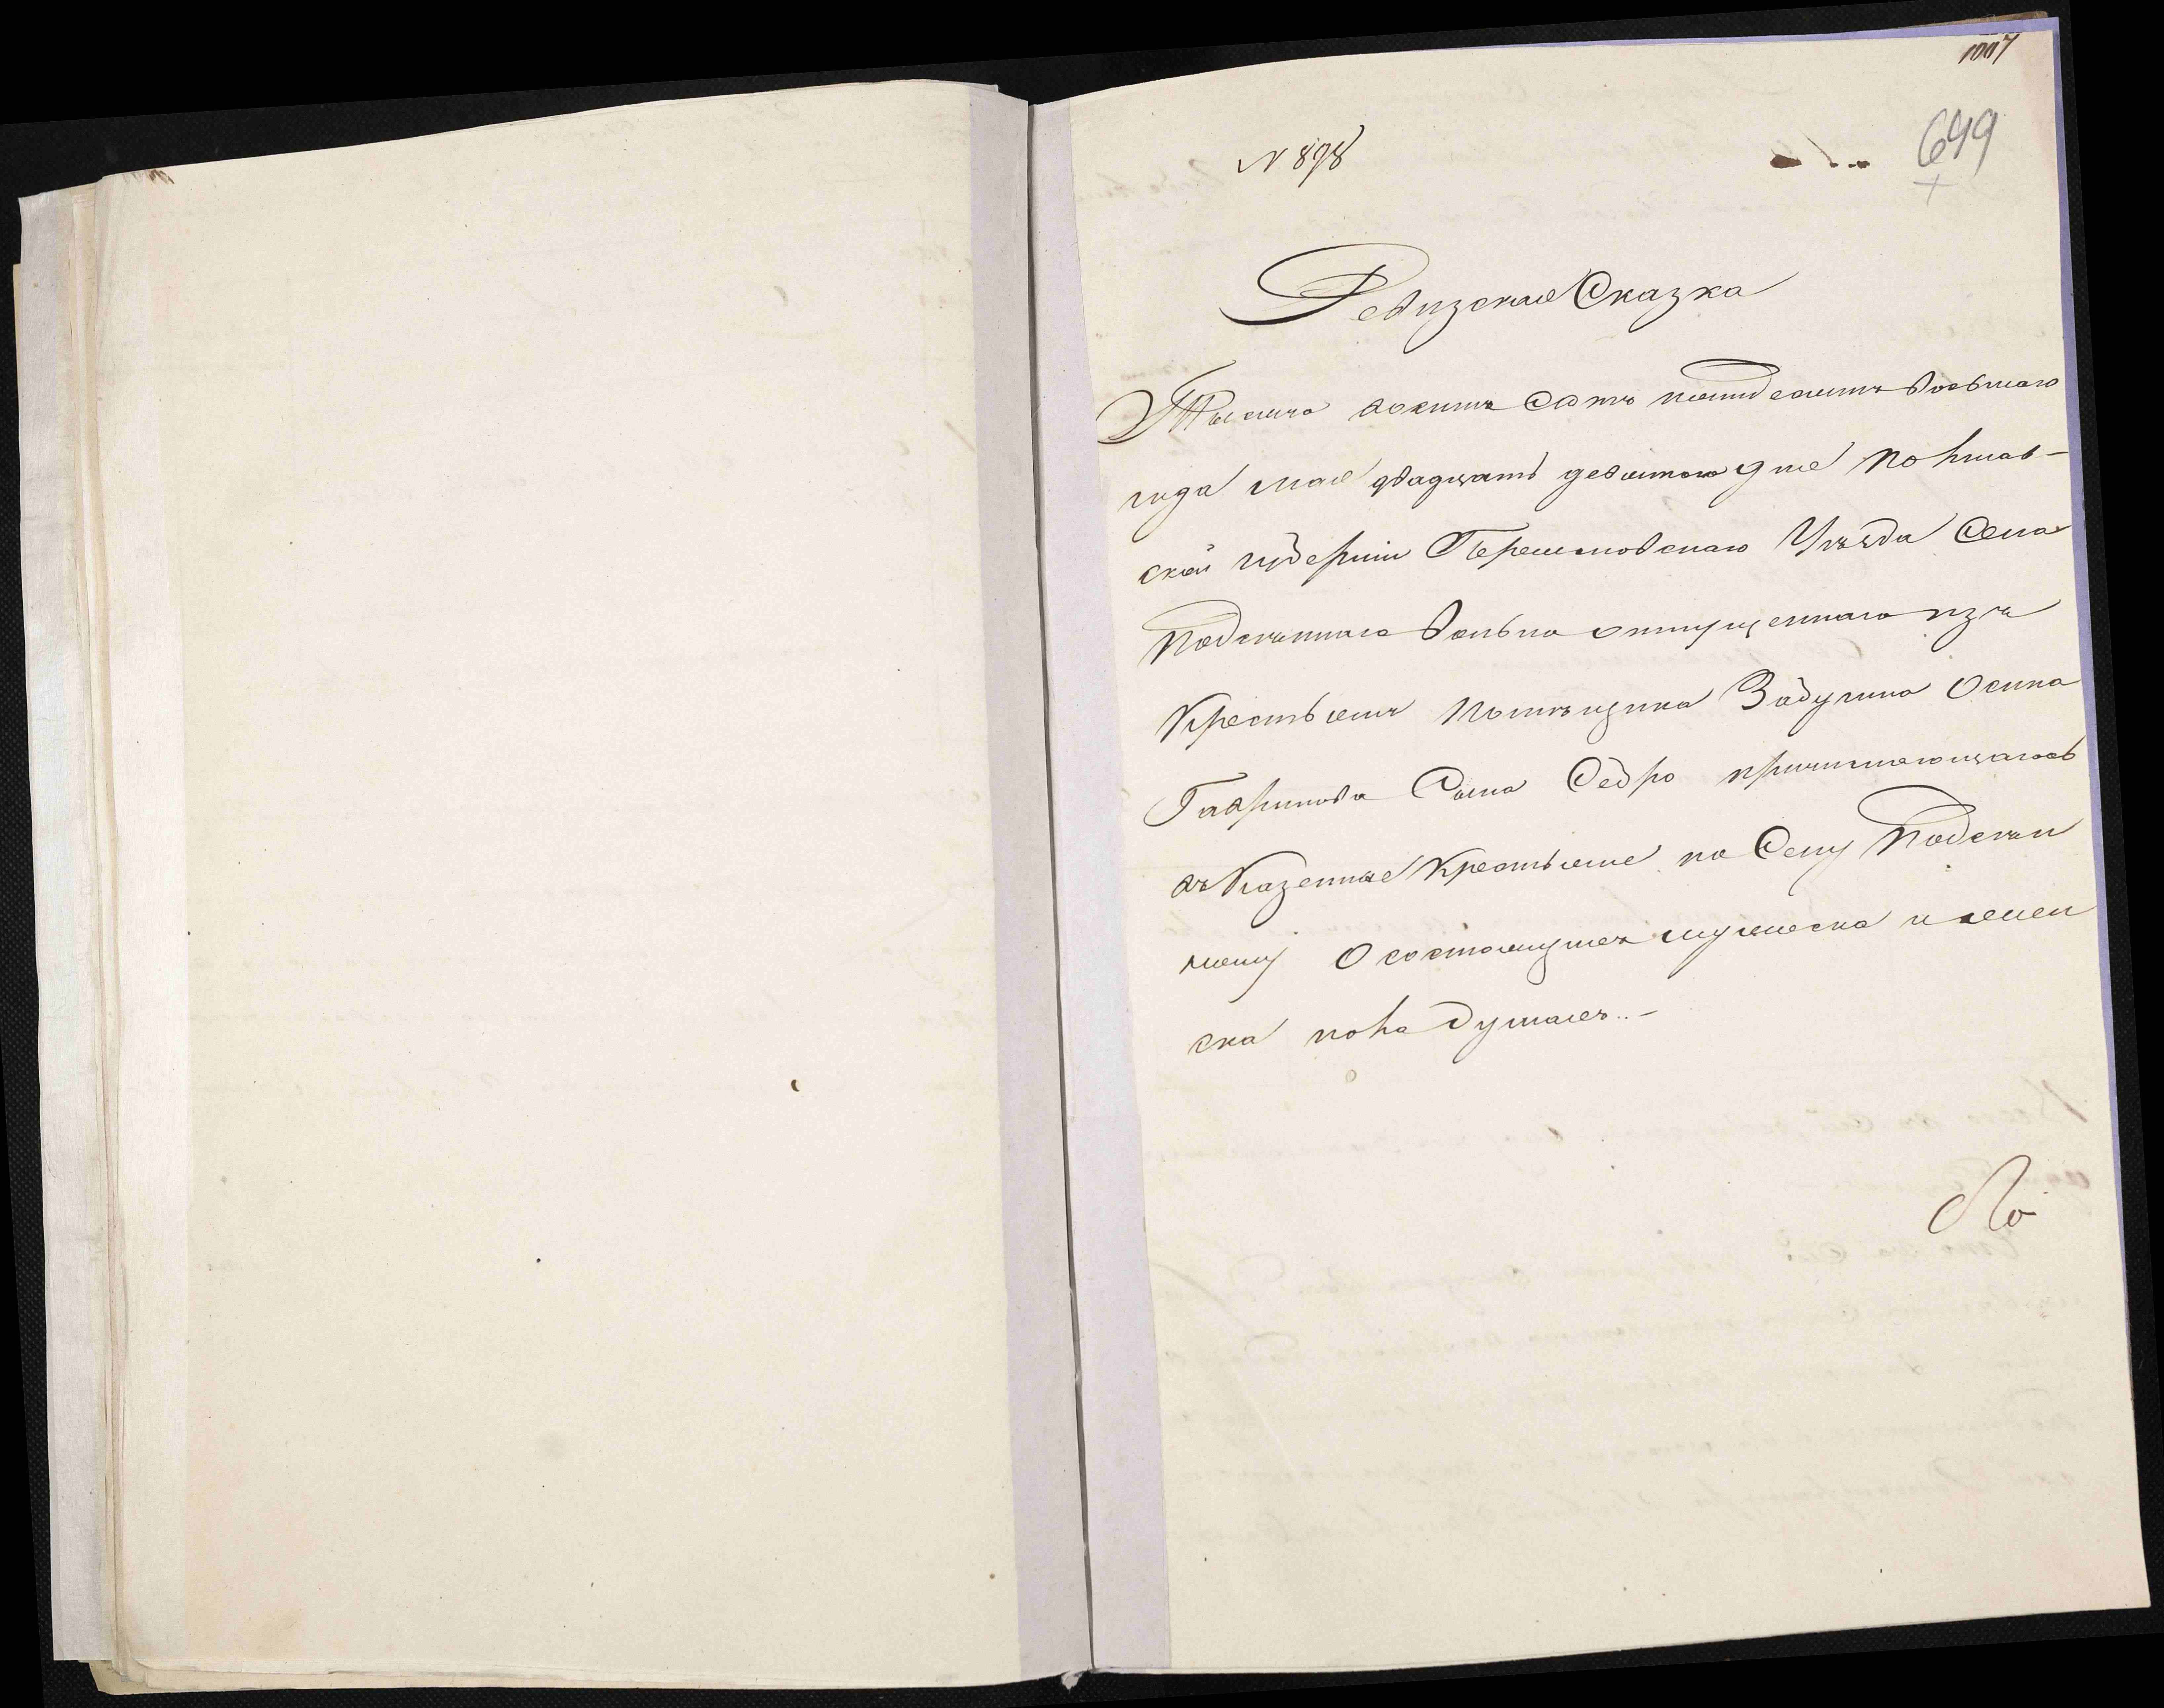 1007
649
N 898
Ревизская Сказка
Тысяча восемь Сотъ пятьдесятъ восьмаго
года мая двадцать девятого дня Полтав-
ской губерніи Переяловскаго Уѣзда Села
Подсѣннаго вольно отпущеннаго изъ
Крестьянъ помѣщика Забугина Осипа
Гаврилова Сына Сѣдро причисляющагось
въ Казенные Крестьяне по Селу Подсѣн
ному О состоящихъ мужеска и женс
ска пола душахъ..-